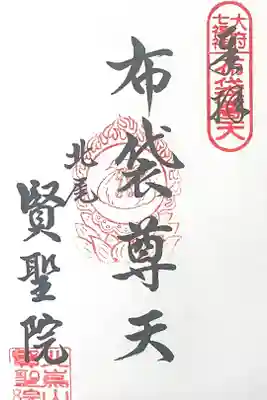 奉拝
大府
七福神
布袋尊天
布袋尊天
北尾
賢聖院